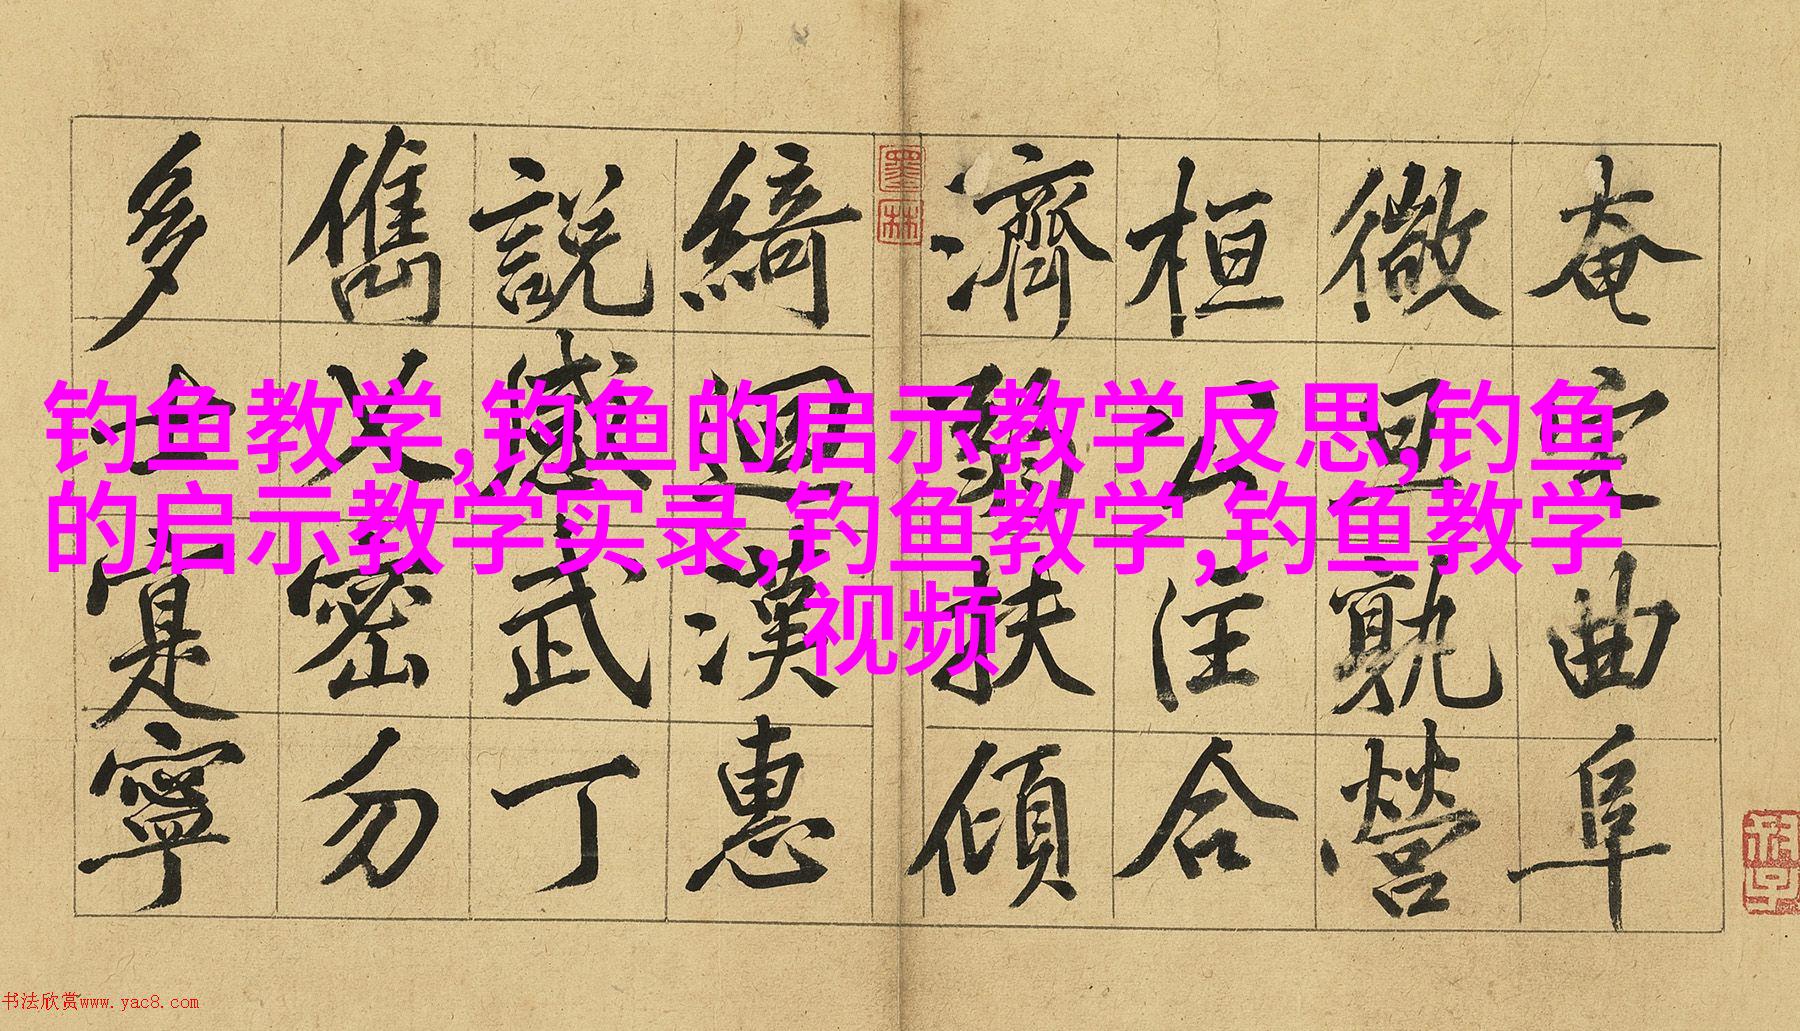 钓鱼教学,钓鱼的启示教学反思,钓鱼
的启示教学实录,钓鱼教学,钓鱼教学
视频
奄宅曲阜
微旦孰營
桓公匡合
濟弱扶傾
綺迴漢惠
說感武丁
儁乂密勿
多士寔寧
墨林
书法欣赏www.yac8.com